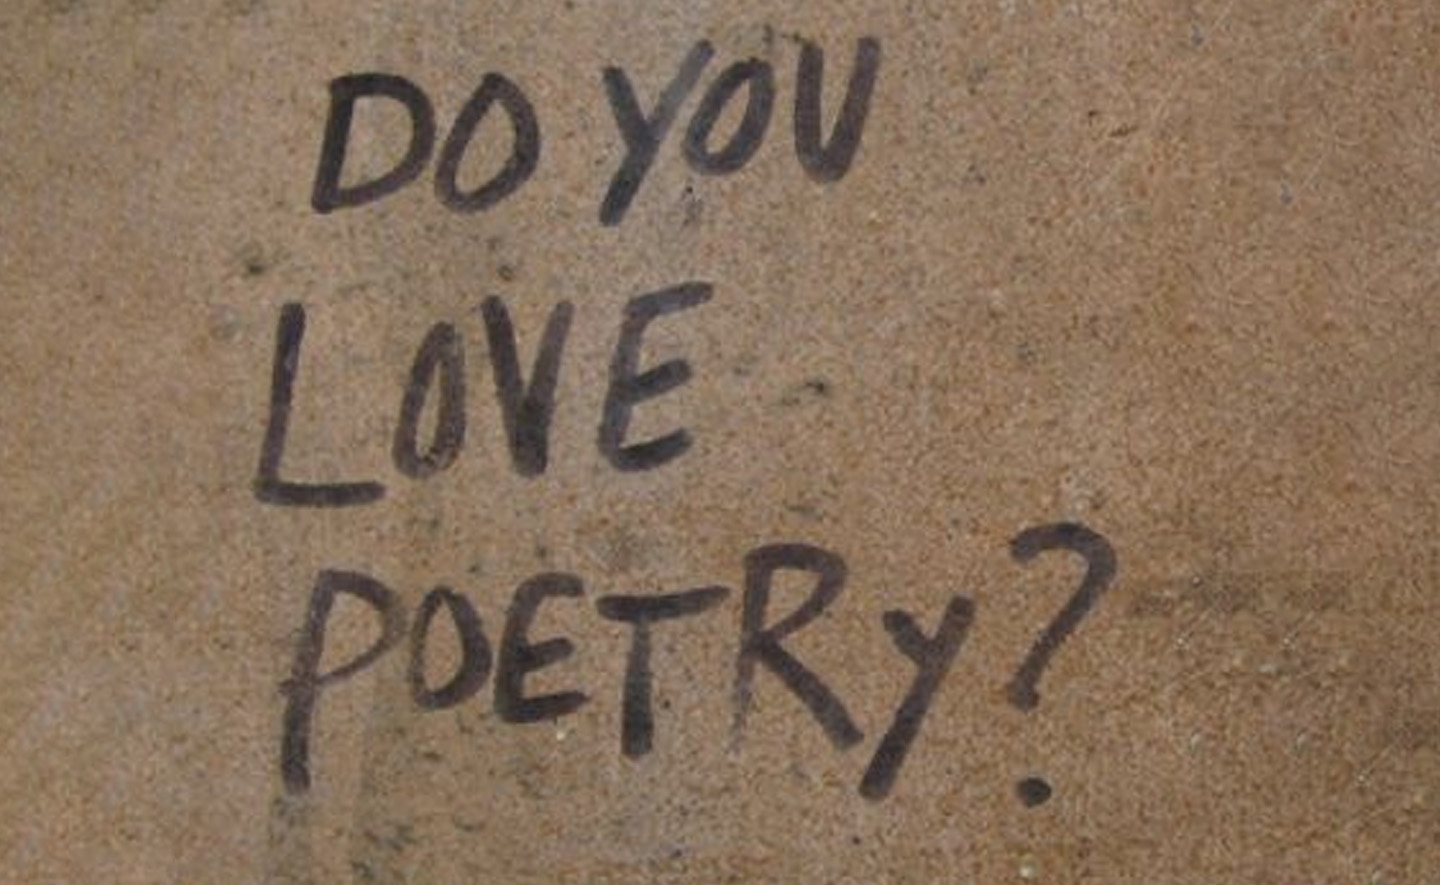 DO YOU
LOVE
POETRy?